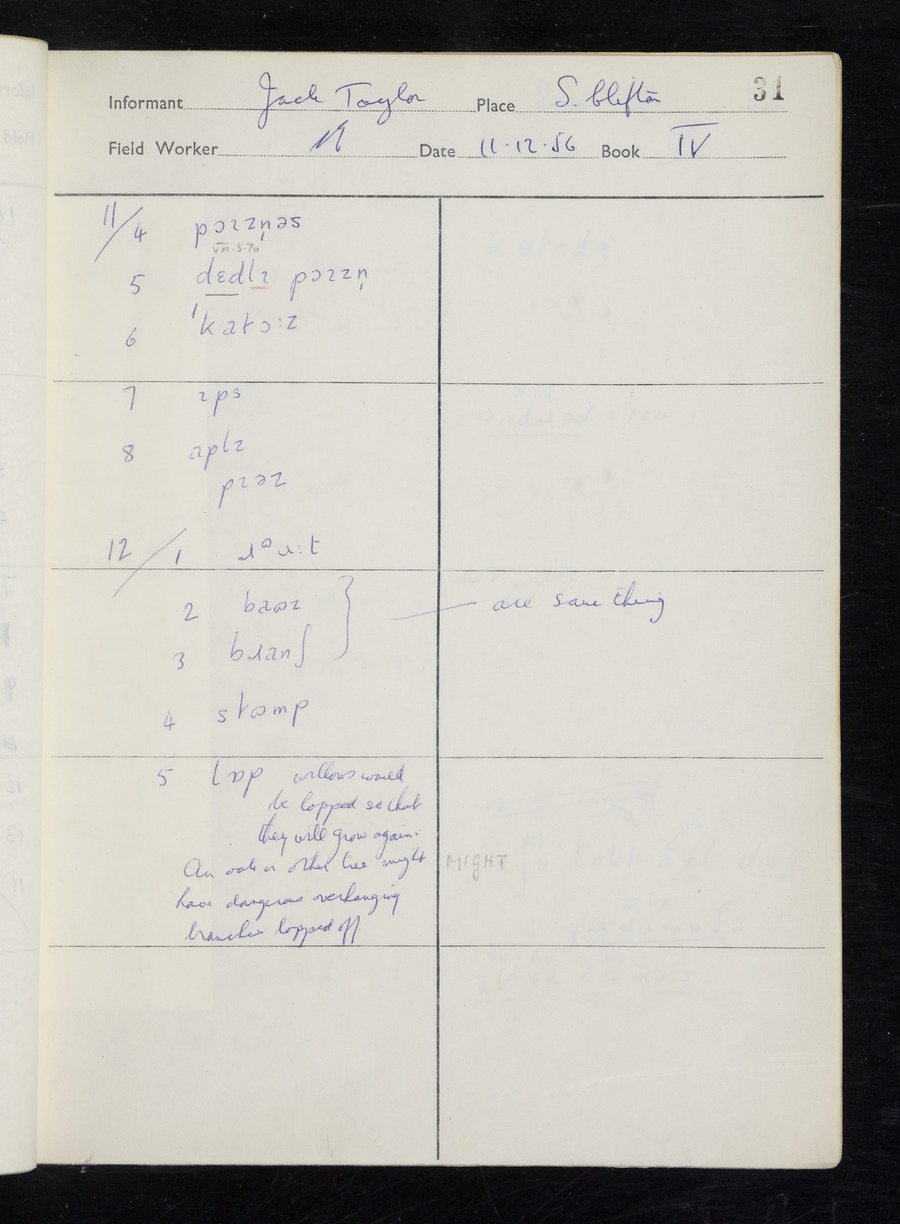 31
Informant Jack Taylor Place S. Clifton
Field Worker Date 11.12.56 Book IV
11/4 pɔɪzn̩əs
VIII-5-7a
5 dɛdlɪ pɔɪzn̩
6 ˈkatɔ:z
7 ɪps
8 aplz
pɪəz
12/1 ɹᶷu:t
2 baʊz
3 bɹanʃ
are same thing
4 stʊmp
5 lɒp willows would
be lopped so that
they will grow again.
An oak or other tree might MIGHT
have dangerous overhanging
branches lopped off.